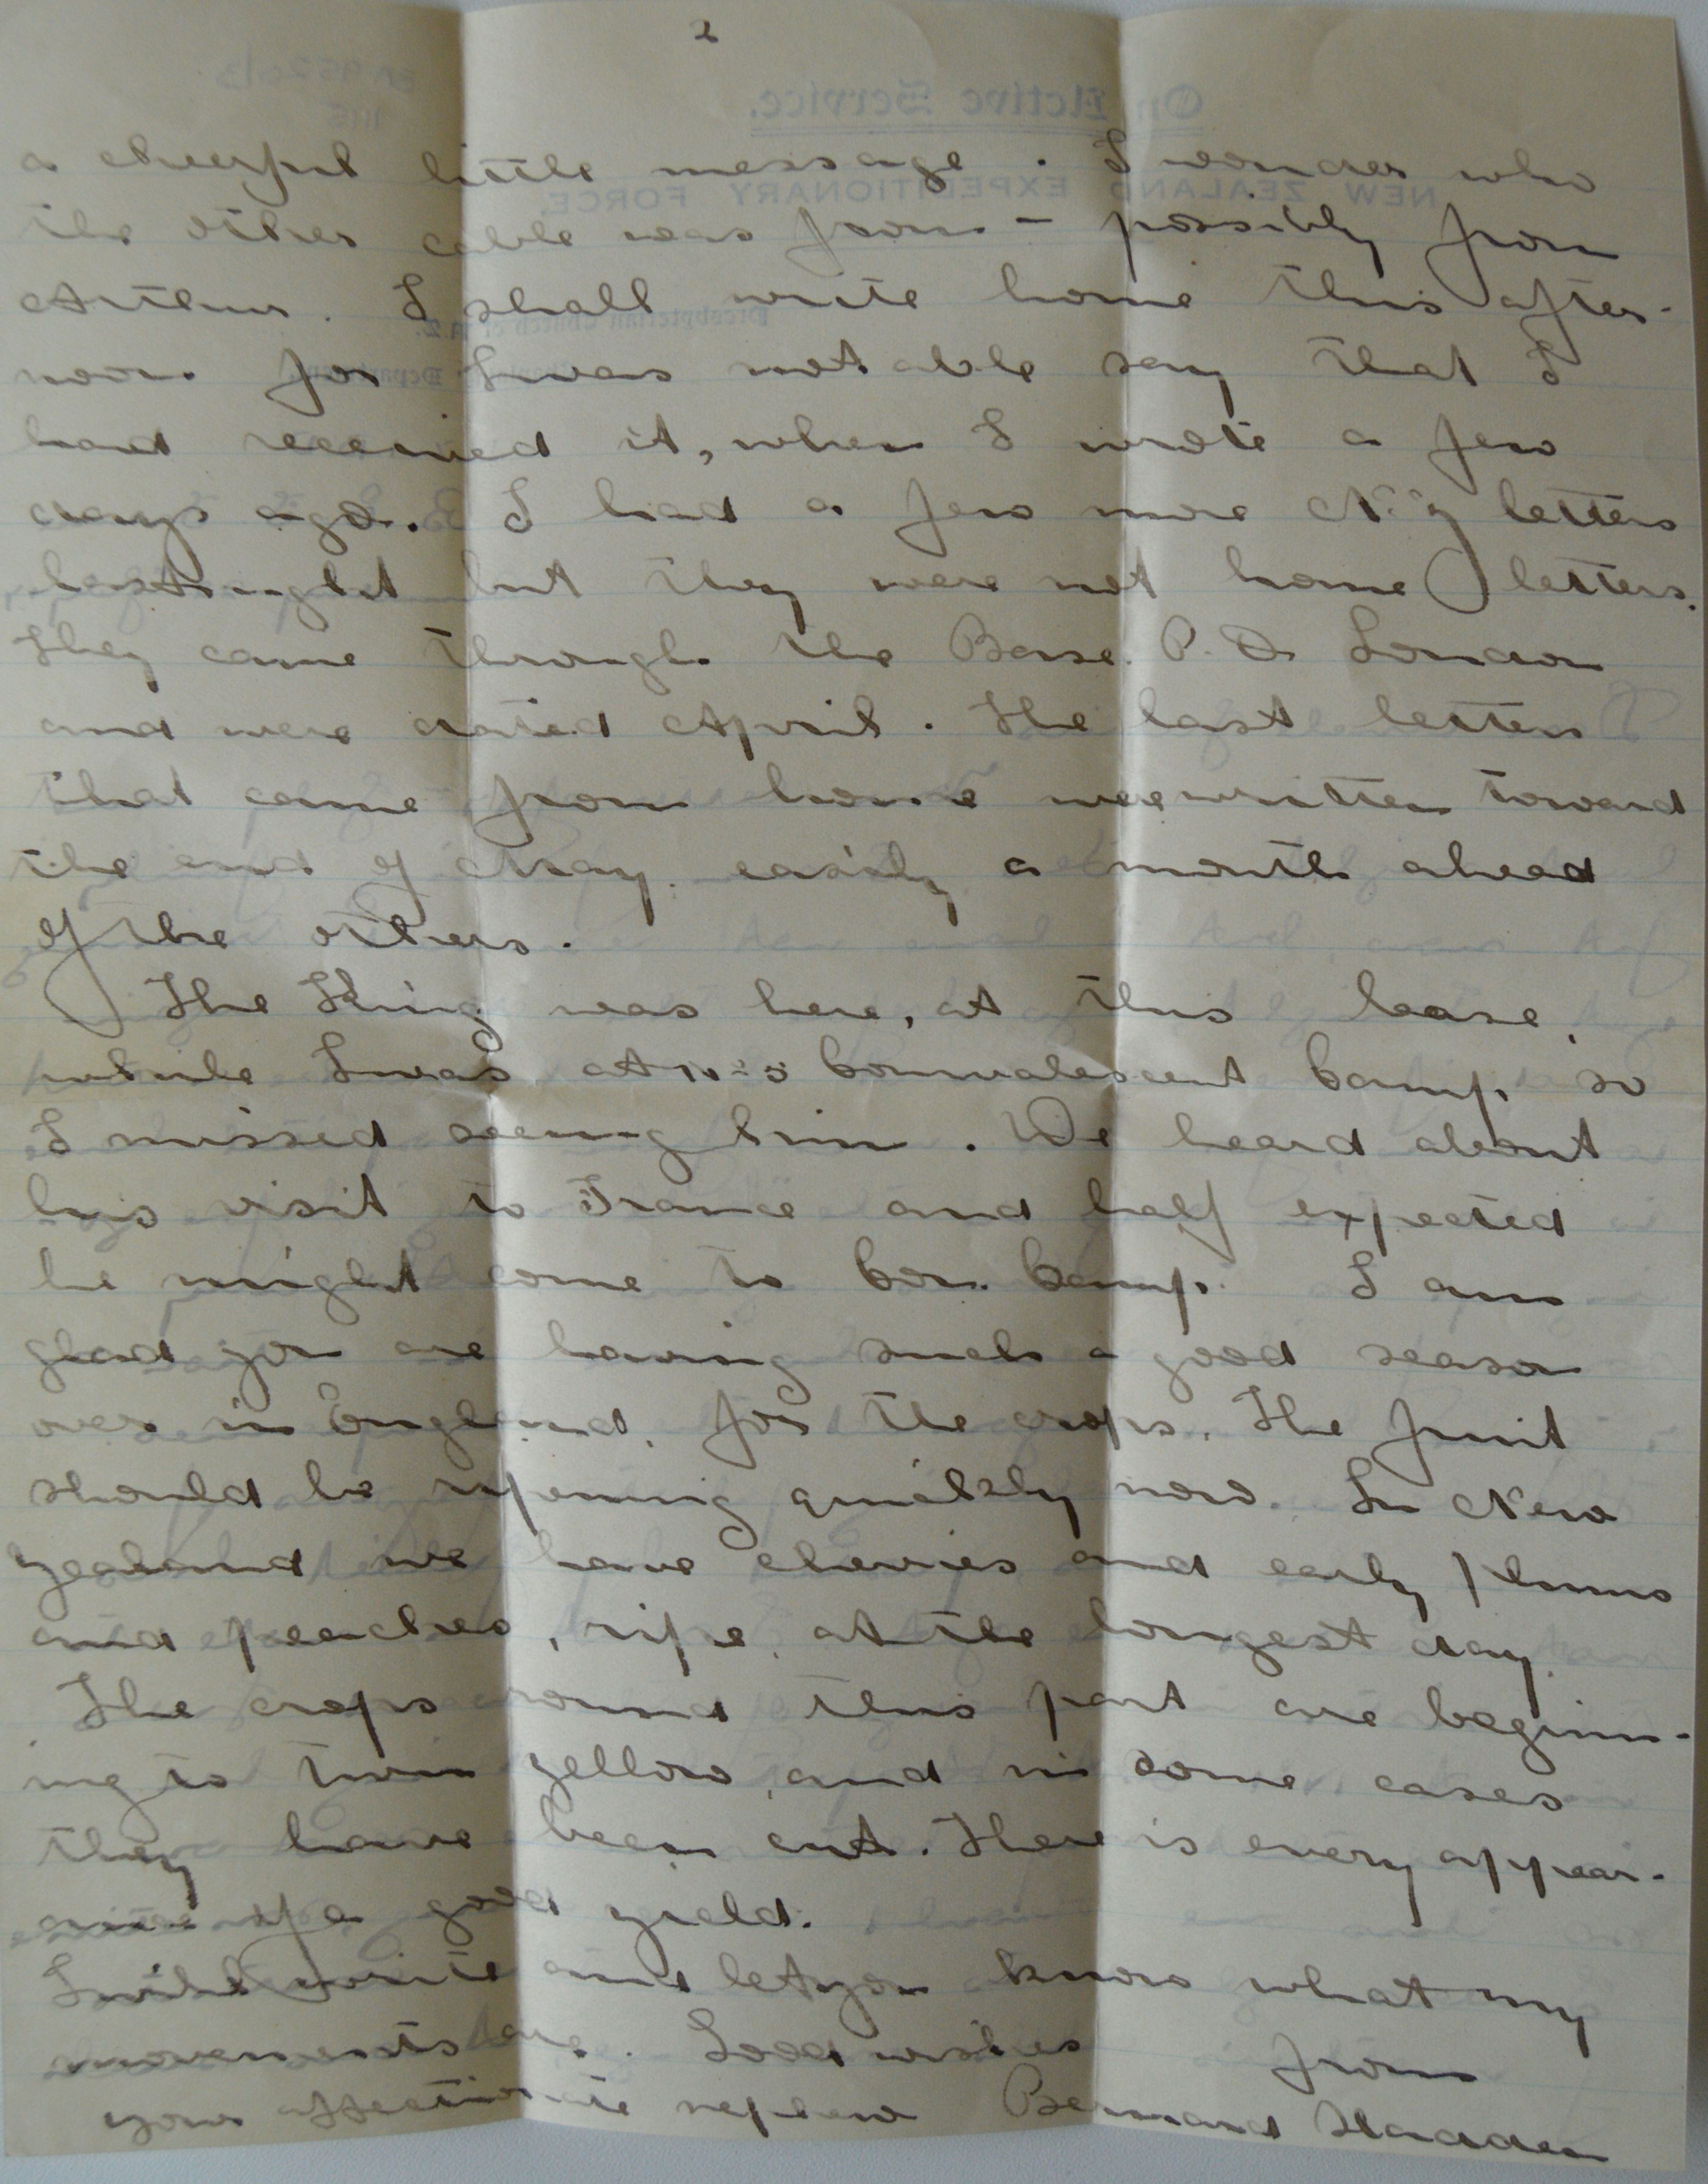 2
a cheerful little message. I wonder who
the other cable was from – possibly from
Arthur. I shall write home this after-
noon for I was not able say that I
had received it, when I wrote a few
days ago. I had a few more N.Z letters
last night but they were not home letters.
They came through the Base P.O. London
and were dated April. The last letters
that came from home were written toward
the end of May. easily a month ahead
of the others.
The King was here, at this base,
while I was at No 5 Convalescent Camp, so
I missed seeing him. We heard about
his visit to France and half expected
he might come to Con. Camp. I am
glad you are having such a good season
over in England, for the crops. The fruit
should be ripening quickly now. In New
Zealand we have cherries and early plums
and peaches, ripe at the longest day.
The crops around this part are beginn-
ing to turn yellow and in some cases
they have been cut. There is every appear-
ance of a good yield.
I will write and let you know what my
movements are. Good wishes from
your affectionate nephew Bernard
On Active Service.
NEW ZEALAND EXPEDITIONARY FORCE.
Presbyterian Church of N.Z.
Department